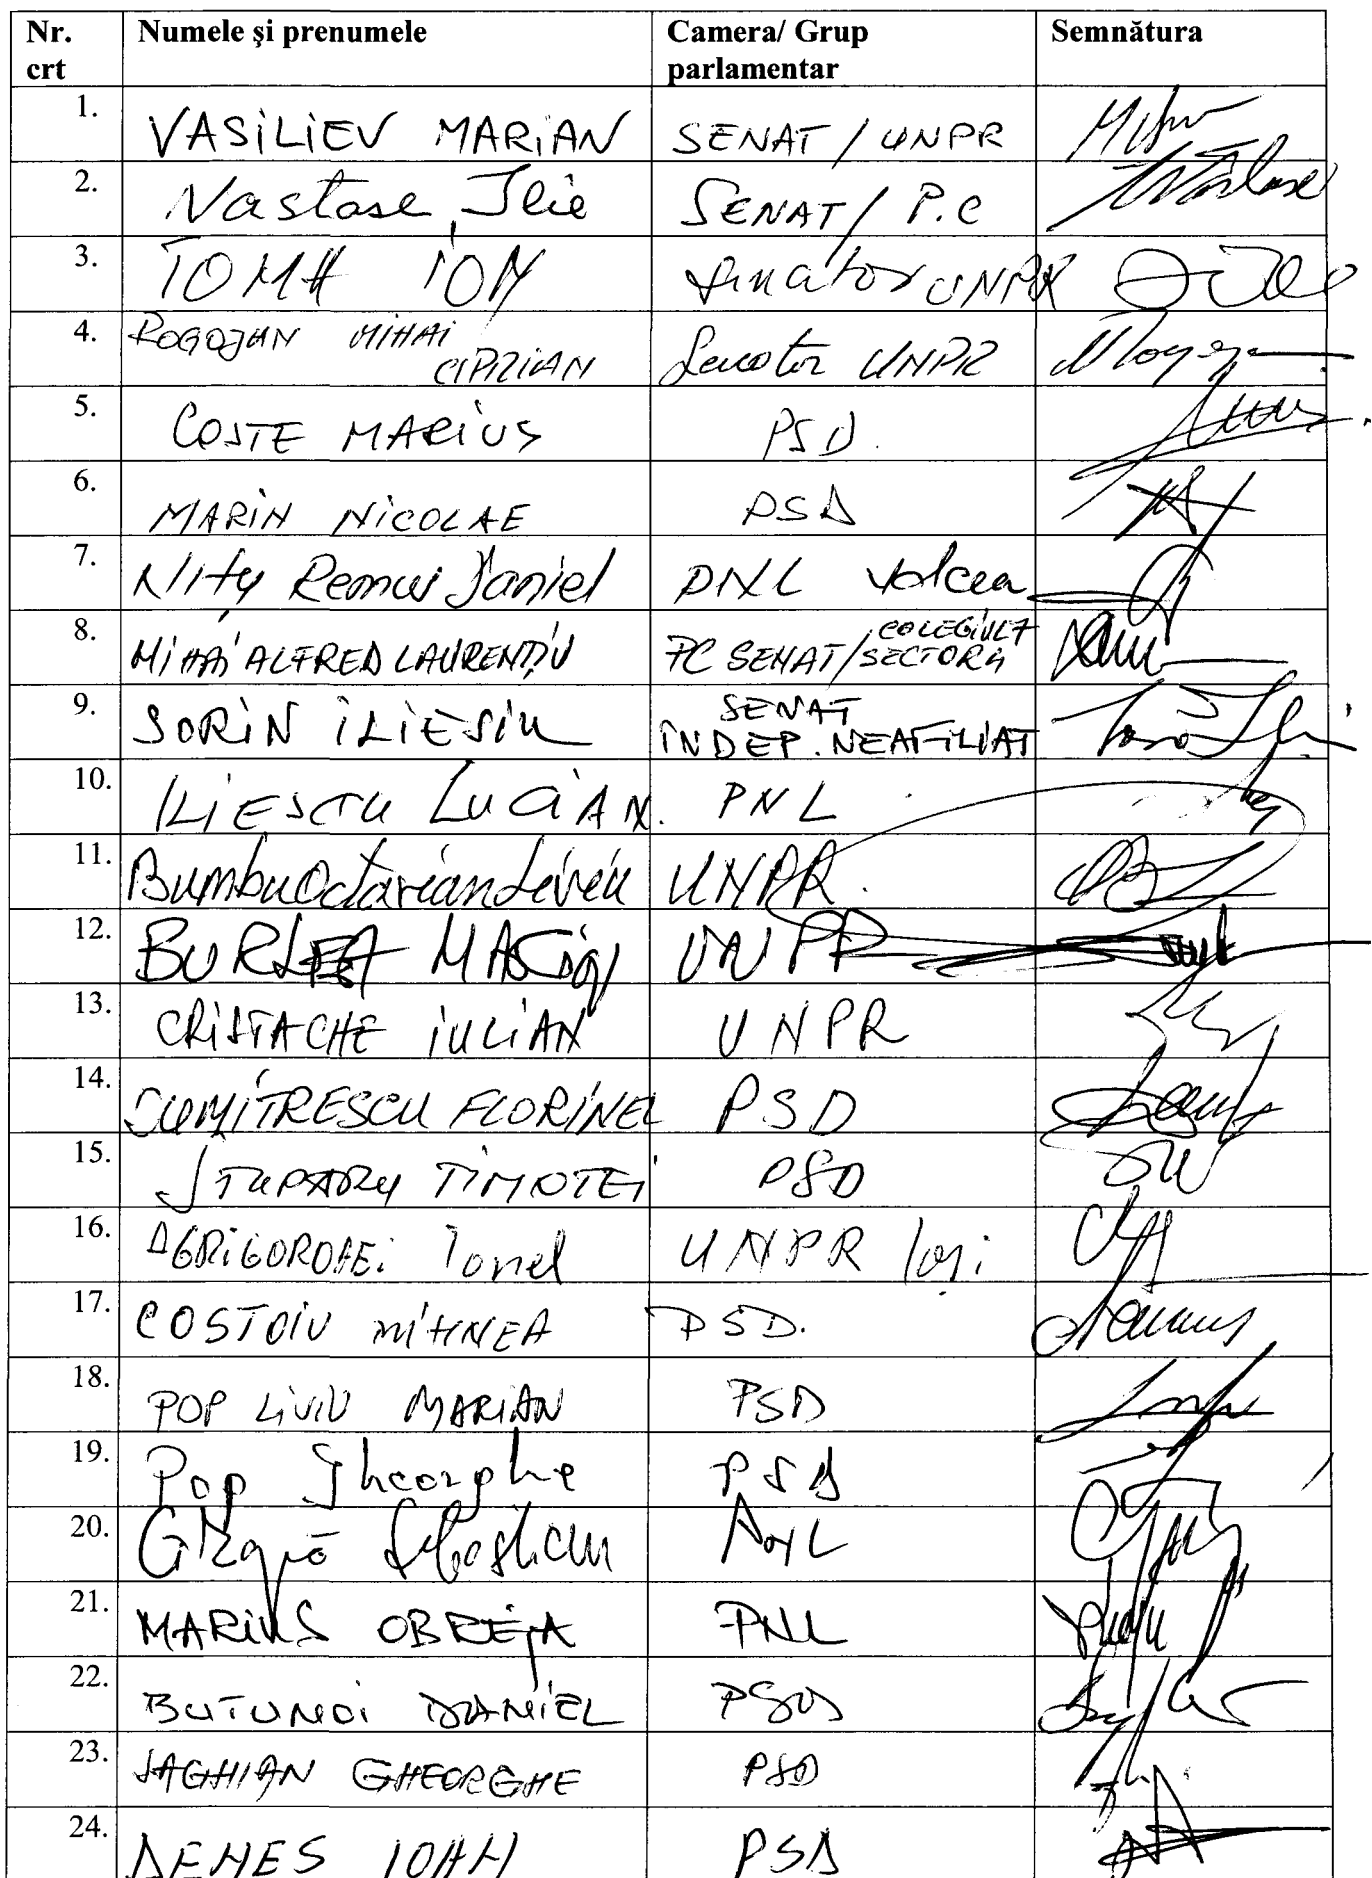 Nr. crt Numele şi prenumele Camera/ Grup parlamentar Semnătura
1. VASILIEV MARIAN SENAT / UNPR
2. Nastase Ilie SENAT / P.C
3. TOMA ION senator UNPR
4. ROGOJAN MIHAI CIPRIAN Senator UNPR
5. COSTE MARIUS PSD.
6. MARIN NICOLAE PSD
7. Niţu Remus Daniel PNL Valcea
8. MIHAI ALFRED LAURENȚIU PC SENAT/ COLEGIUL 7 SECTOR 4
9. SORIN ILIEȘIU SENAT INDEP. NEAFILIAT
10. ILIESCU LUCIAN. PNL
11. Bumbu Octavian Liviu UNPR.
12. BURLEA MARIN UNPR
13. CRISTACHE IULIAN UNPR
14. DUMITRESCU FLORINEL PSD
15. STUPARU TIMOTEI PSD
16. AGRIGOROAEI Ionel UNPR Iași
17. COSTOIU MIHNEA PSD.
18. POP LIVIU MARIAN PSD
19. Pop Gheorghe PSD
20. PNL
21. MARIUS OBREJA PNL
22. BUTUNOI DANIEL PSD
23. SAGHIAN GHEORGHE PSD
24. DENEȘ IOAN PSD